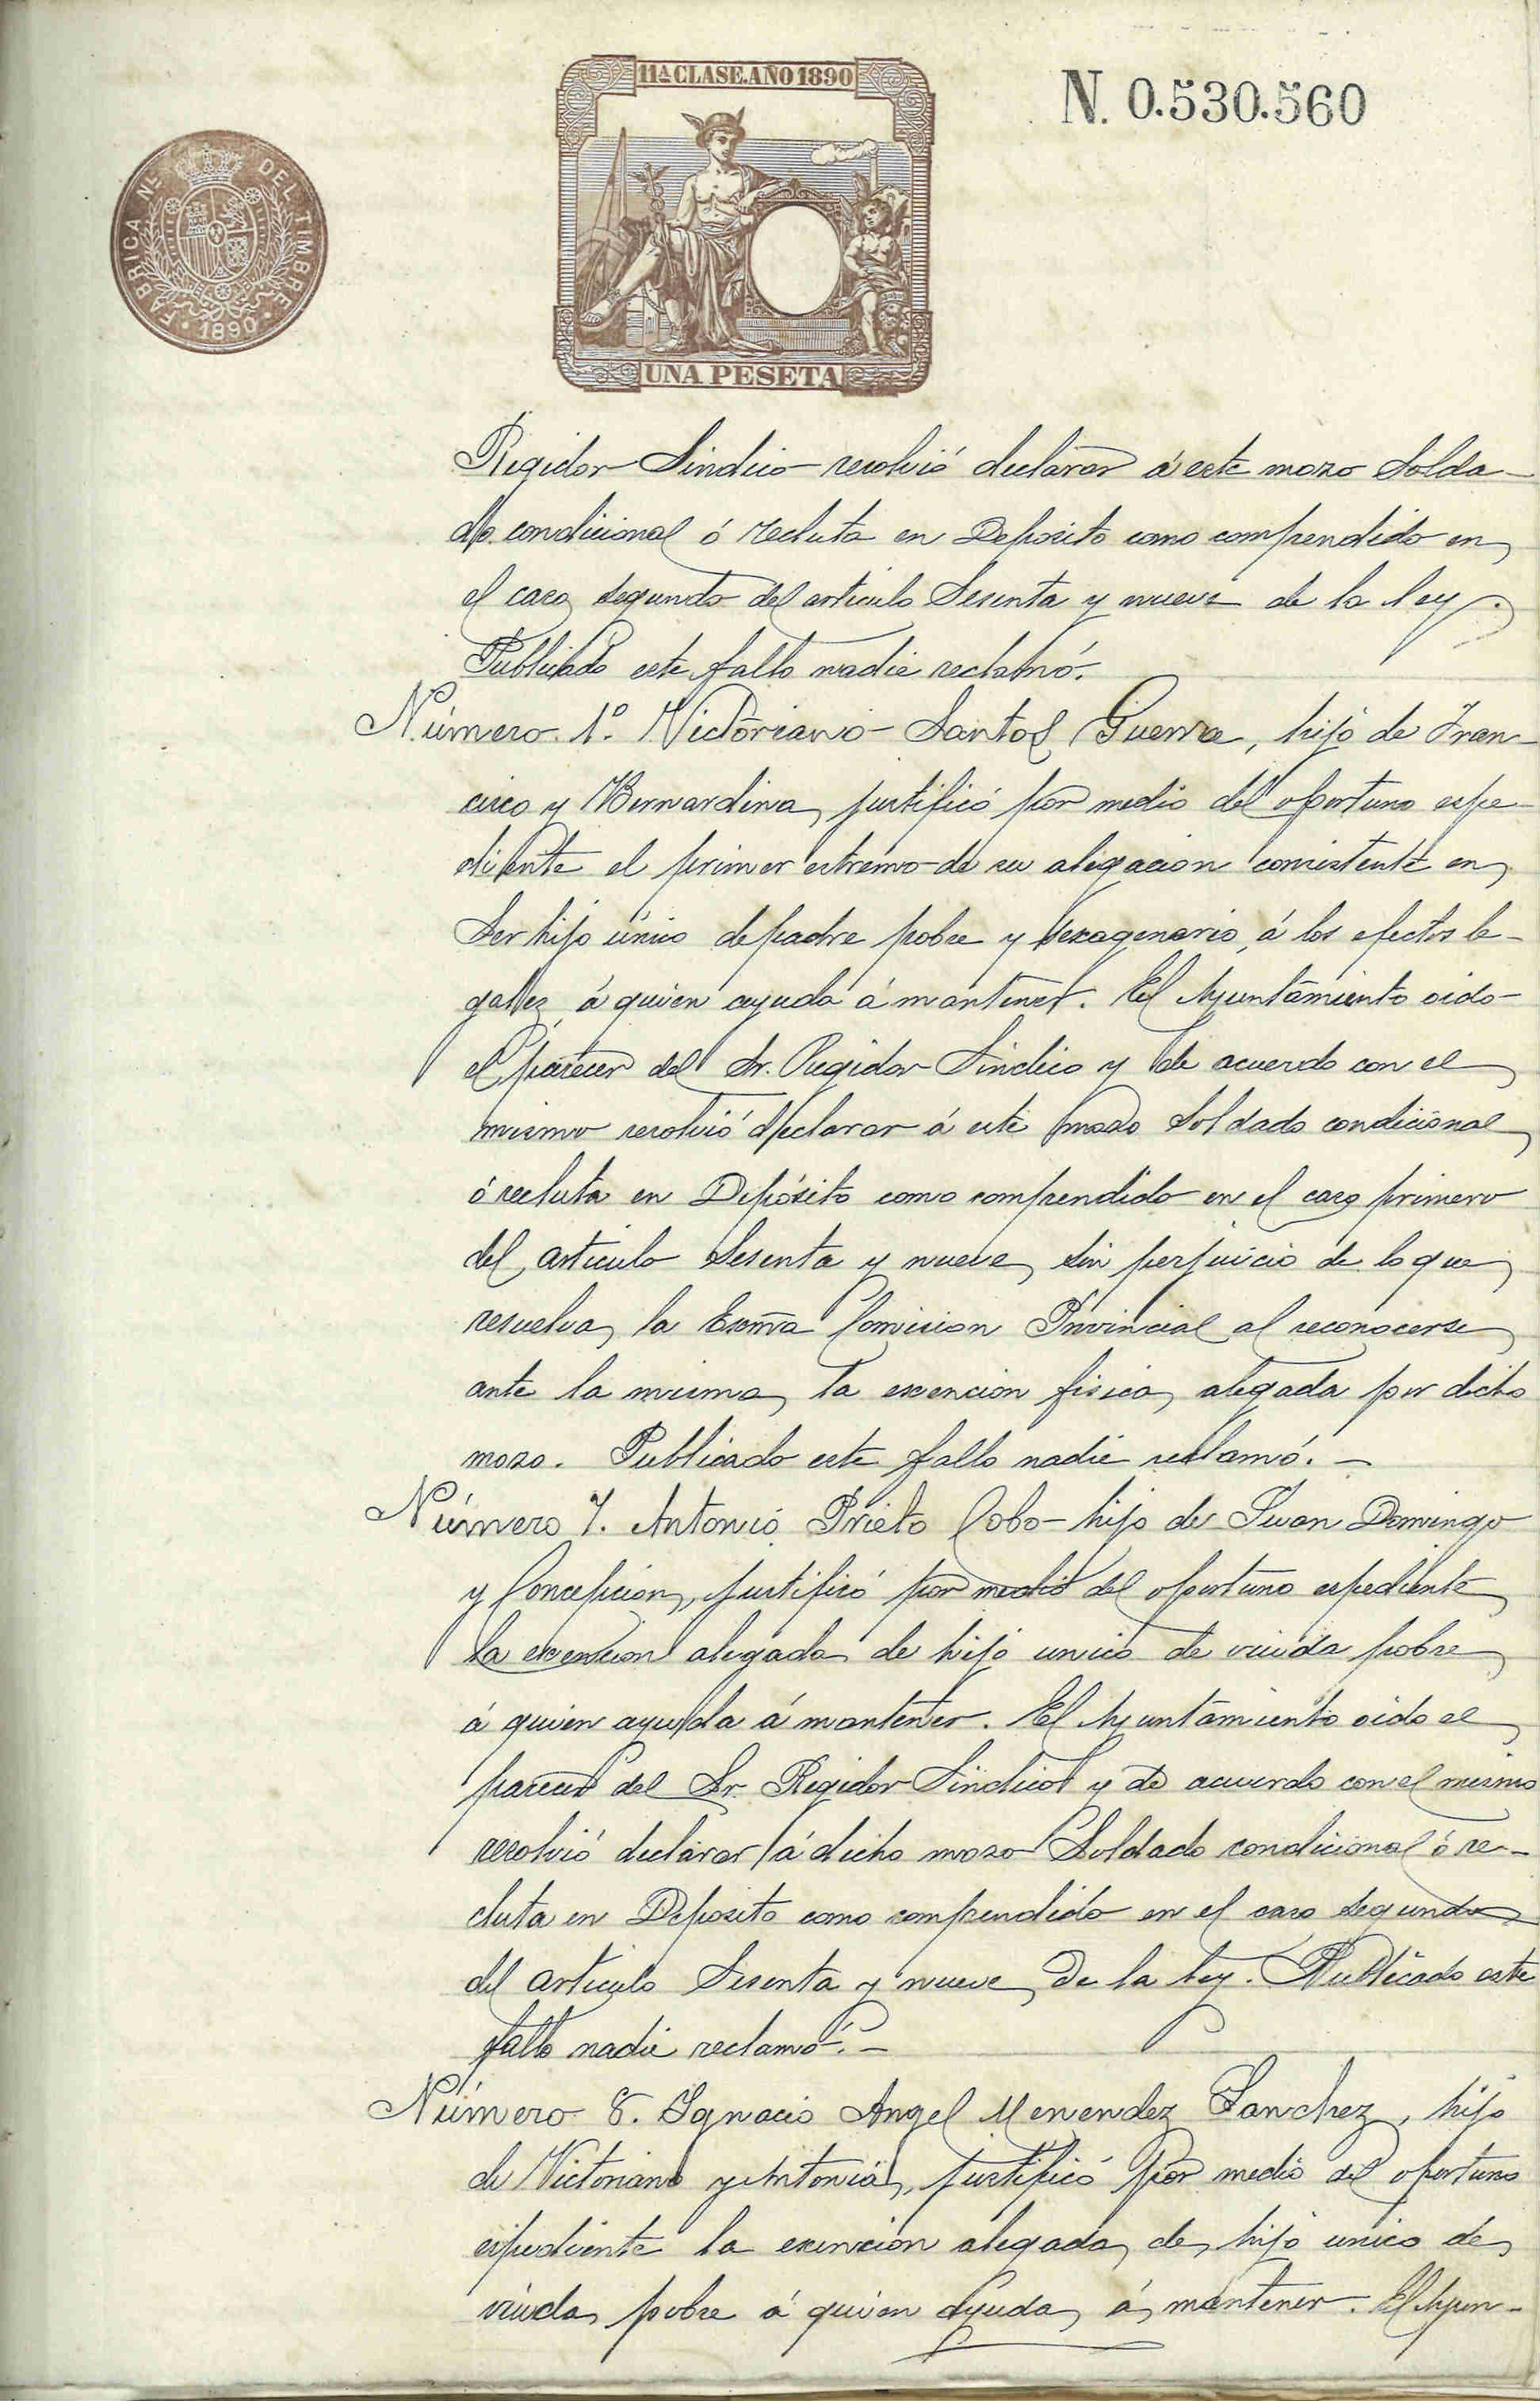 11ª CLASE. AÑO 1890
N. 0.530.560
FÁBRICA Nª DEL TIMBRE
1890
UNA PESETA
Regidor Sindico resolvió declarar á este mozo Solda-
do condicional ó recluta en Deposito como comprendido en
el caso segundo del articulo Sesenta y nueve de la ley.
Publicado este fallo nadie reclamó.
Número 1º. Victoriano Santos Guerra, hijo de Fran-
cisco y Bernardina, justificó por medio del oportuno espe-
diente el primer estremo de su alegacion consistente en
Ser hijo único de padre pobre y sexagenario, á los efectos le-
gales, á quien ayuda á mantener. El Ayuntamiento oido
el parecer del Sr. Regidor Sindico y de acuerdo con el
mismo resolvió declarar á este mozo Soldado condicional
ó recluta en Depósito como comprendido en el caso primero
del articulo Sesenta y nueve, sin perjuicio de lo que
resuelva la Excma Comision Provincial al reconocerse
ante la misma la exencion fisica alegada por dicho
mozo. Publicado este fallo nadie reclamó. -
Número 7. Antonio Prieto Cobo hijo de Juan Domingo
y Concepcion, justificó por medio del oportuno espediente
la exencion alegada de hijo unico de viuda pobre
á quien ayuda á mantener. El Ayuntamiento oido el
parecer del Sr. Regidor Sindico y de acuerdo con el mismo
resolvió declarar á dicho mozo Soldado condicional ó re-
cluta en Deposito como comprendido en el caso segundo
del articulo Sesenta y nueve de la ley. Publicado este
fallo nadie reclamó. -
Número 8. Ignacio Angel Menendez Sanchez, hijo
de Victoriano y Antonia, justificó por medio del oportuno
espediente la exencion alegada de hijo unico de
viuda pobre á quien ayuda á mantener. El Ayun-